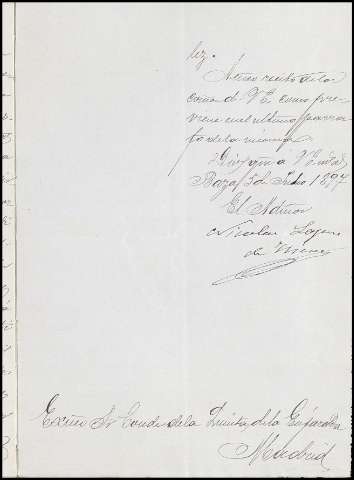 lez.
Acuso recibo de la
como previene en el ultimo parra-
fo de la misma
Dios gue á V E m a
Baza 5 de Julio 1897
El Admor
Nicolas
de
Excmo Sr Conde de la Quinta de la Enjarada
Madrid